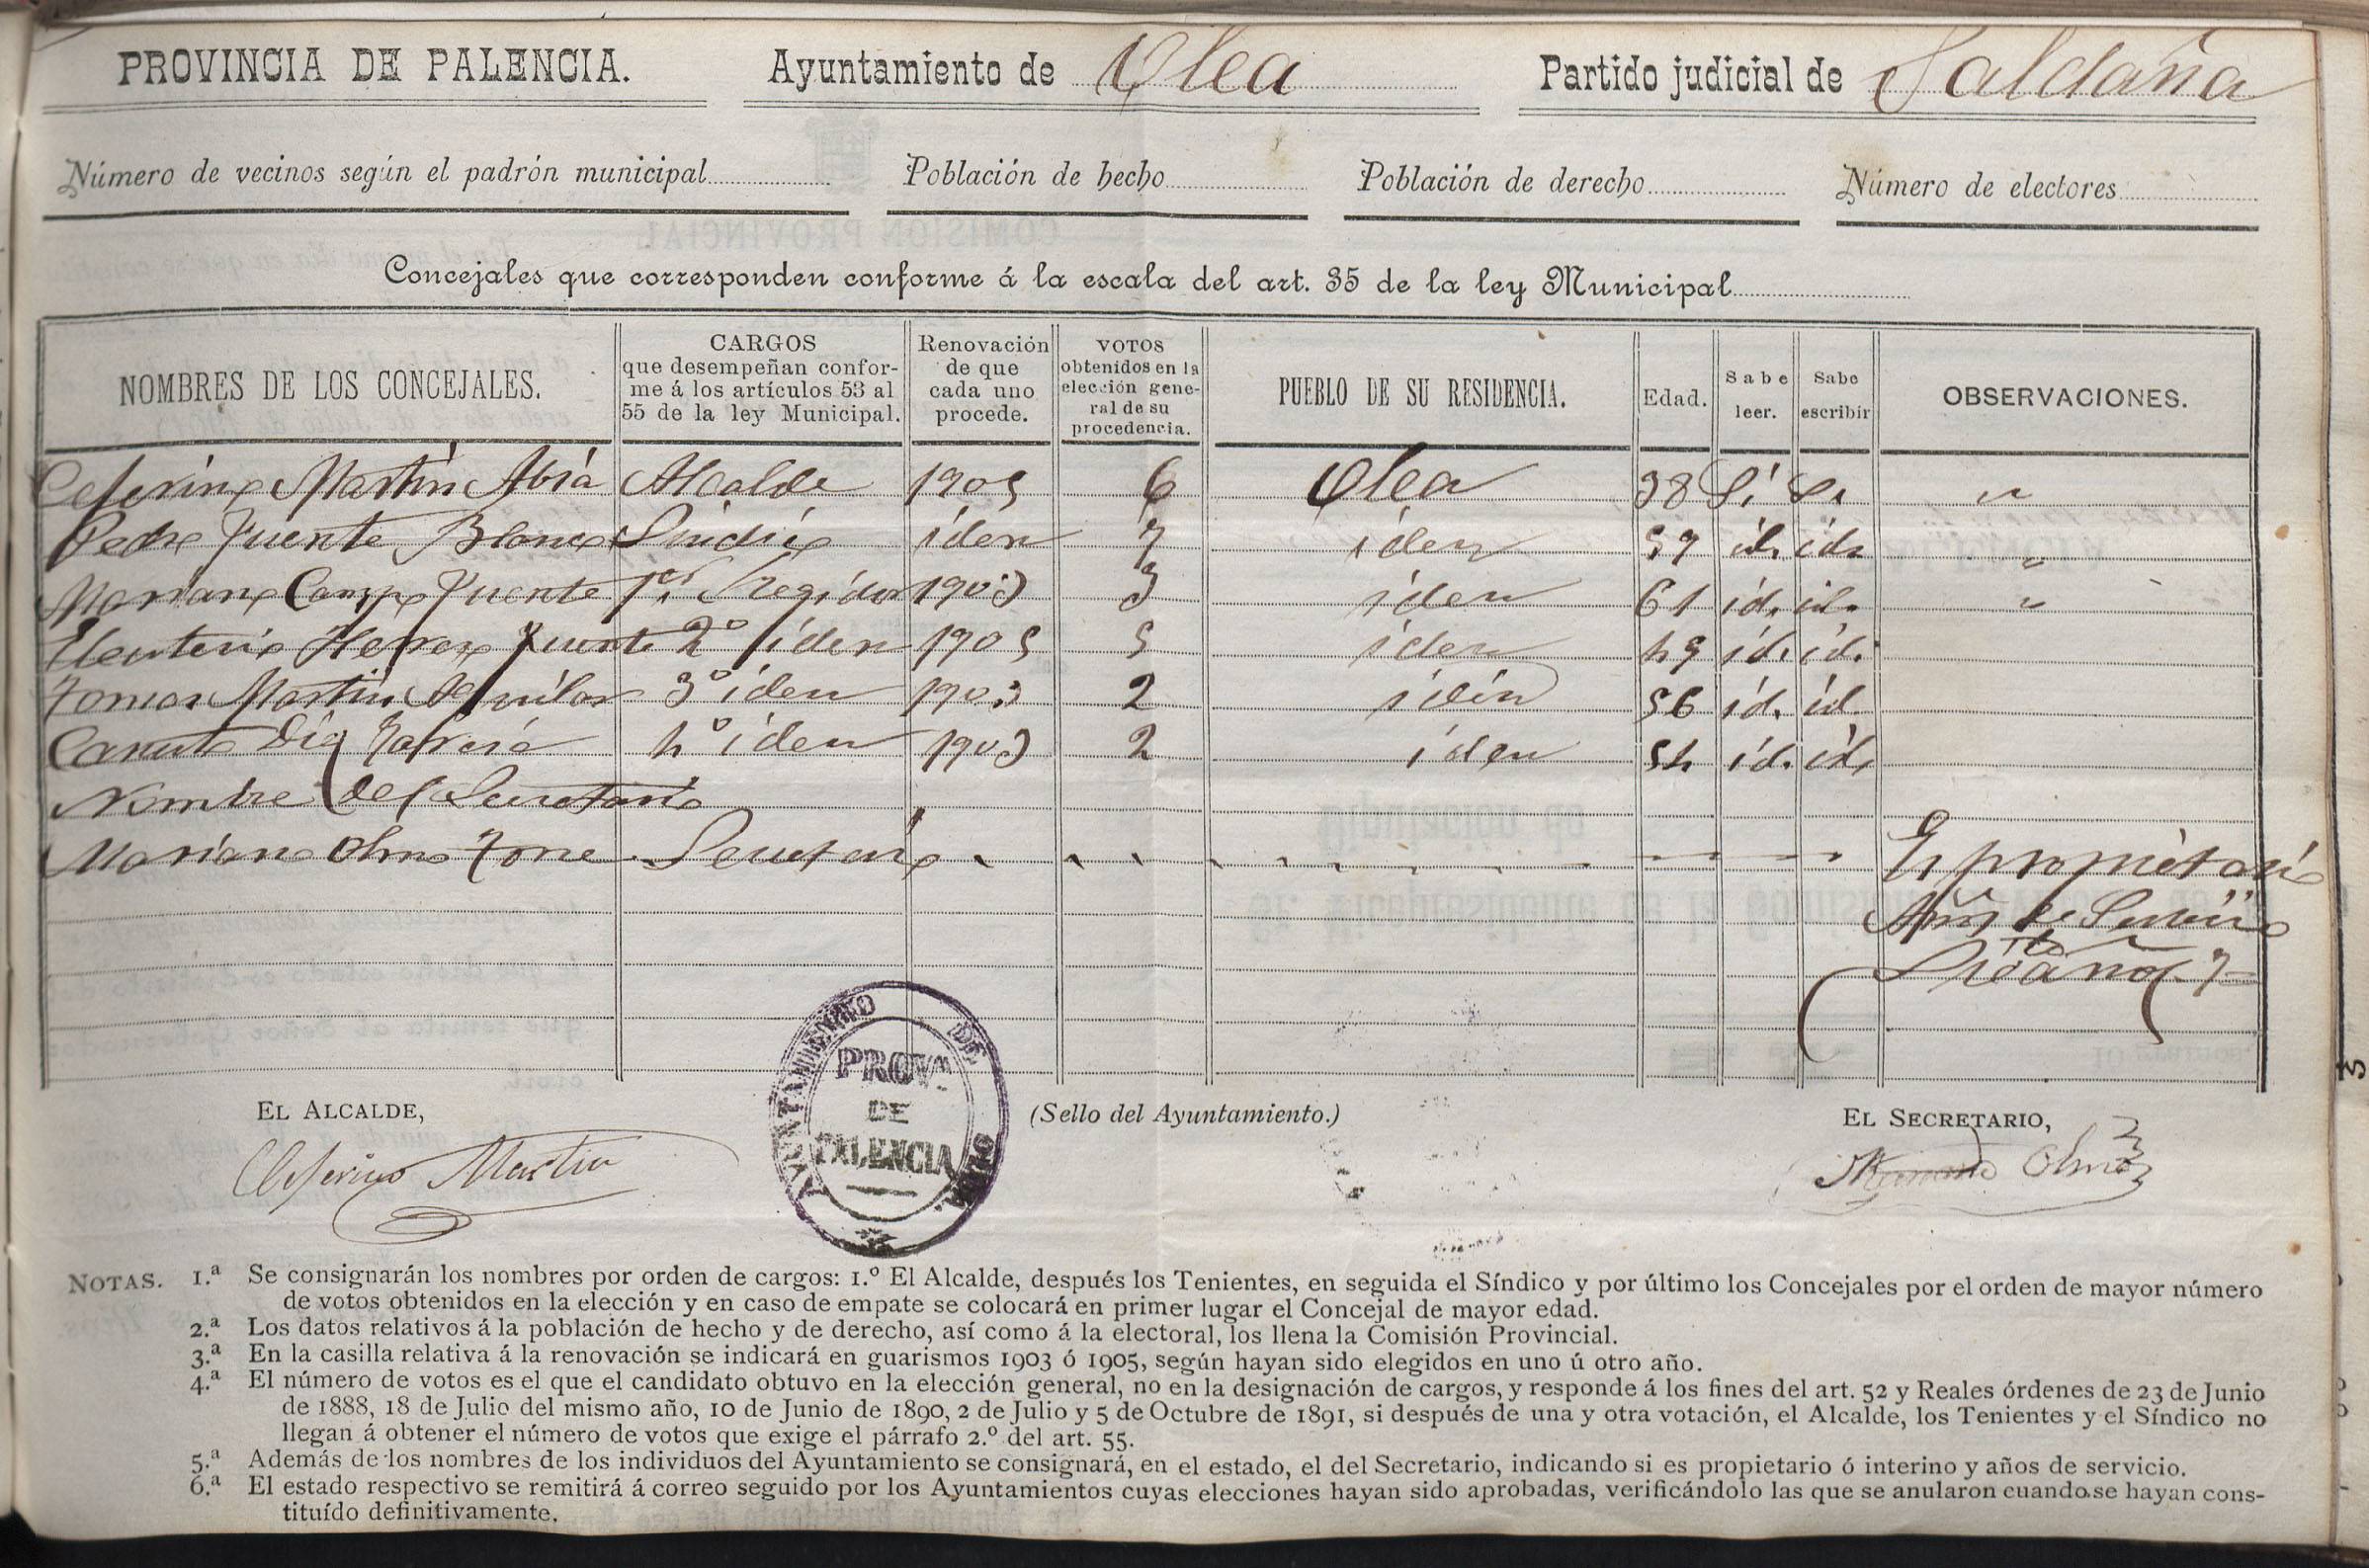 PROVINCIA DE PALENCIA. Ayuntamiento de Olea Partido judicial de Saldaña
Número de vecinos según el padrón municipal Población de hecho Población de derecho Número de electores
Concejales que corresponden conforme á la escala del art. 35 de la ley Municipal
NOMBRES DE LOS CONCEJALES. CARGOS que desempeñan confor- me á los artículos 53 al 55 de la ley Municipal. Renovación de que cada uno procede. VOTOS obtenidos en la elección gene- ral de su procedencia. PUEBLO DE SU RESIDENCIA. Edad. Sabe leer. Sabe escribir OBSERVACIONES.
Ceferino Martin Abia Alcalde 1905 6 Olea 38 Si Si "
Pedro Fuente Blanco Sindico iden 7 iden 59 id. id. "
Mariano Campo Fuente 1er Regidor 1903 3 iden 61 id. id. "
Eleuterio Herrero Fuente 2º iden 1905 5 iden 49 id. id.
Tomas Martin Aguilar 3º iden 1903 2 iden 56 id. id.
Canuto Diez Garcia 4º iden 1903 2 iden 54 id. id.
Nombre del Secretario
Mariano Olmo Torre Secretario Es propietario
Años de Servicio
7
AYUNTAMIENTO DE OLEA
PROVA
DE
PALENCIA
EL ALCALDE, (Sello del Ayuntamiento.) EL SECRETARIO,
Ceferino Martin Mariano Olmo
NOTAS. 1.ª Se consignarán los nombres por orden de cargos: 1.º El Alcalde, después los Tenientes, en seguida el Síndico y por último los Concejales por el orden de mayor número
de votos obtenidos en la elección y en caso de empate se colocará en primer lugar el Concejal de mayor edad.
2.ª Los datos relativos á la población de hecho y de derecho, así como á la electoral, los llena la Comisión Provincial.
3.ª En la casilla relativa á la renovación se indicará en guarismos 1903 ó 1905, según hayan sido elegidos en uno ú otro año.
4.ª El número de votos es el que el candidato obtuvo en la elección general, no en la designación de cargos, y responde á los fines del art. 52 y Reales órdenes de 23 de Junio
de 1888, 18 de Julio del mismo año, 10 de Junio de 1890, 2 de Julio y 5 de Octubre de 1891, si después de una y otra votación, el Alcalde, los Tenientes y el Síndico no
llegan á obtener el número de votos que exige el párrafo 2.º del art. 55.
5.ª Además de los nombres de los individuos del Ayuntamiento se consignará, en el estado, el del Secretario, indicando si es propietario ó interino y años de servicio.
6.ª El estado respectivo se remitirá á correo seguido por los Ayuntamientos cuyas elecciones hayan sido aprobadas, verificándolo las que se anularon cuando se hayan cons-
tituído definitivamente.